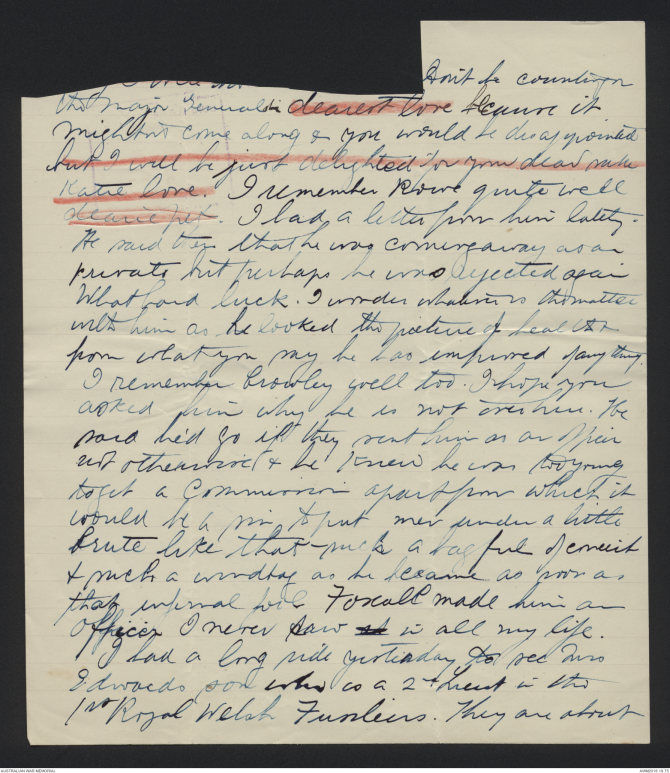 Don't be counting on
the Major Generalship dearest love because it
mightn't come along & you would be disappointed
but I will be just delighted for your dear sake
Katie love. I remember Rowe quite well
dearie pet. I had a letter from him lately.
He said then that he was coming away as a
private but perhaps he was rejected again
What hard luck. I wonder whatever is the matter
with him as he looked the picture of health &
from what you say he has improved if anything.
I remember Crowley well too. I hope you
asked him why he is not over here. He
said he'd go if they sent him as an officer
not otherwise & he knew he was too young
to get a Commission apart from which it
would be a sin to put men under a little
brute like that - such a bag full of conceit
& such a windbag as he became as soon as
that infernal fool Foxall made him an
officer I never saw in all my life.
I had a long ride yesterday to see Mrs
Edwards son who is a 2nd Lieut in the
1st Royal Welsh Fusiliers. They are about
AUSTRALIAN WAR MEMORIAL